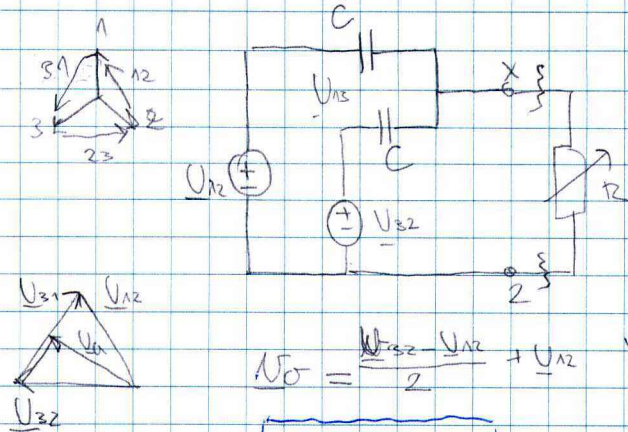 1
31
12
3
2
23
C
U13
C
X
U12
+
-
+
-
U32
R
2
U31 U12
U0
U32
U0 = (U32 - U12)/2 + U12